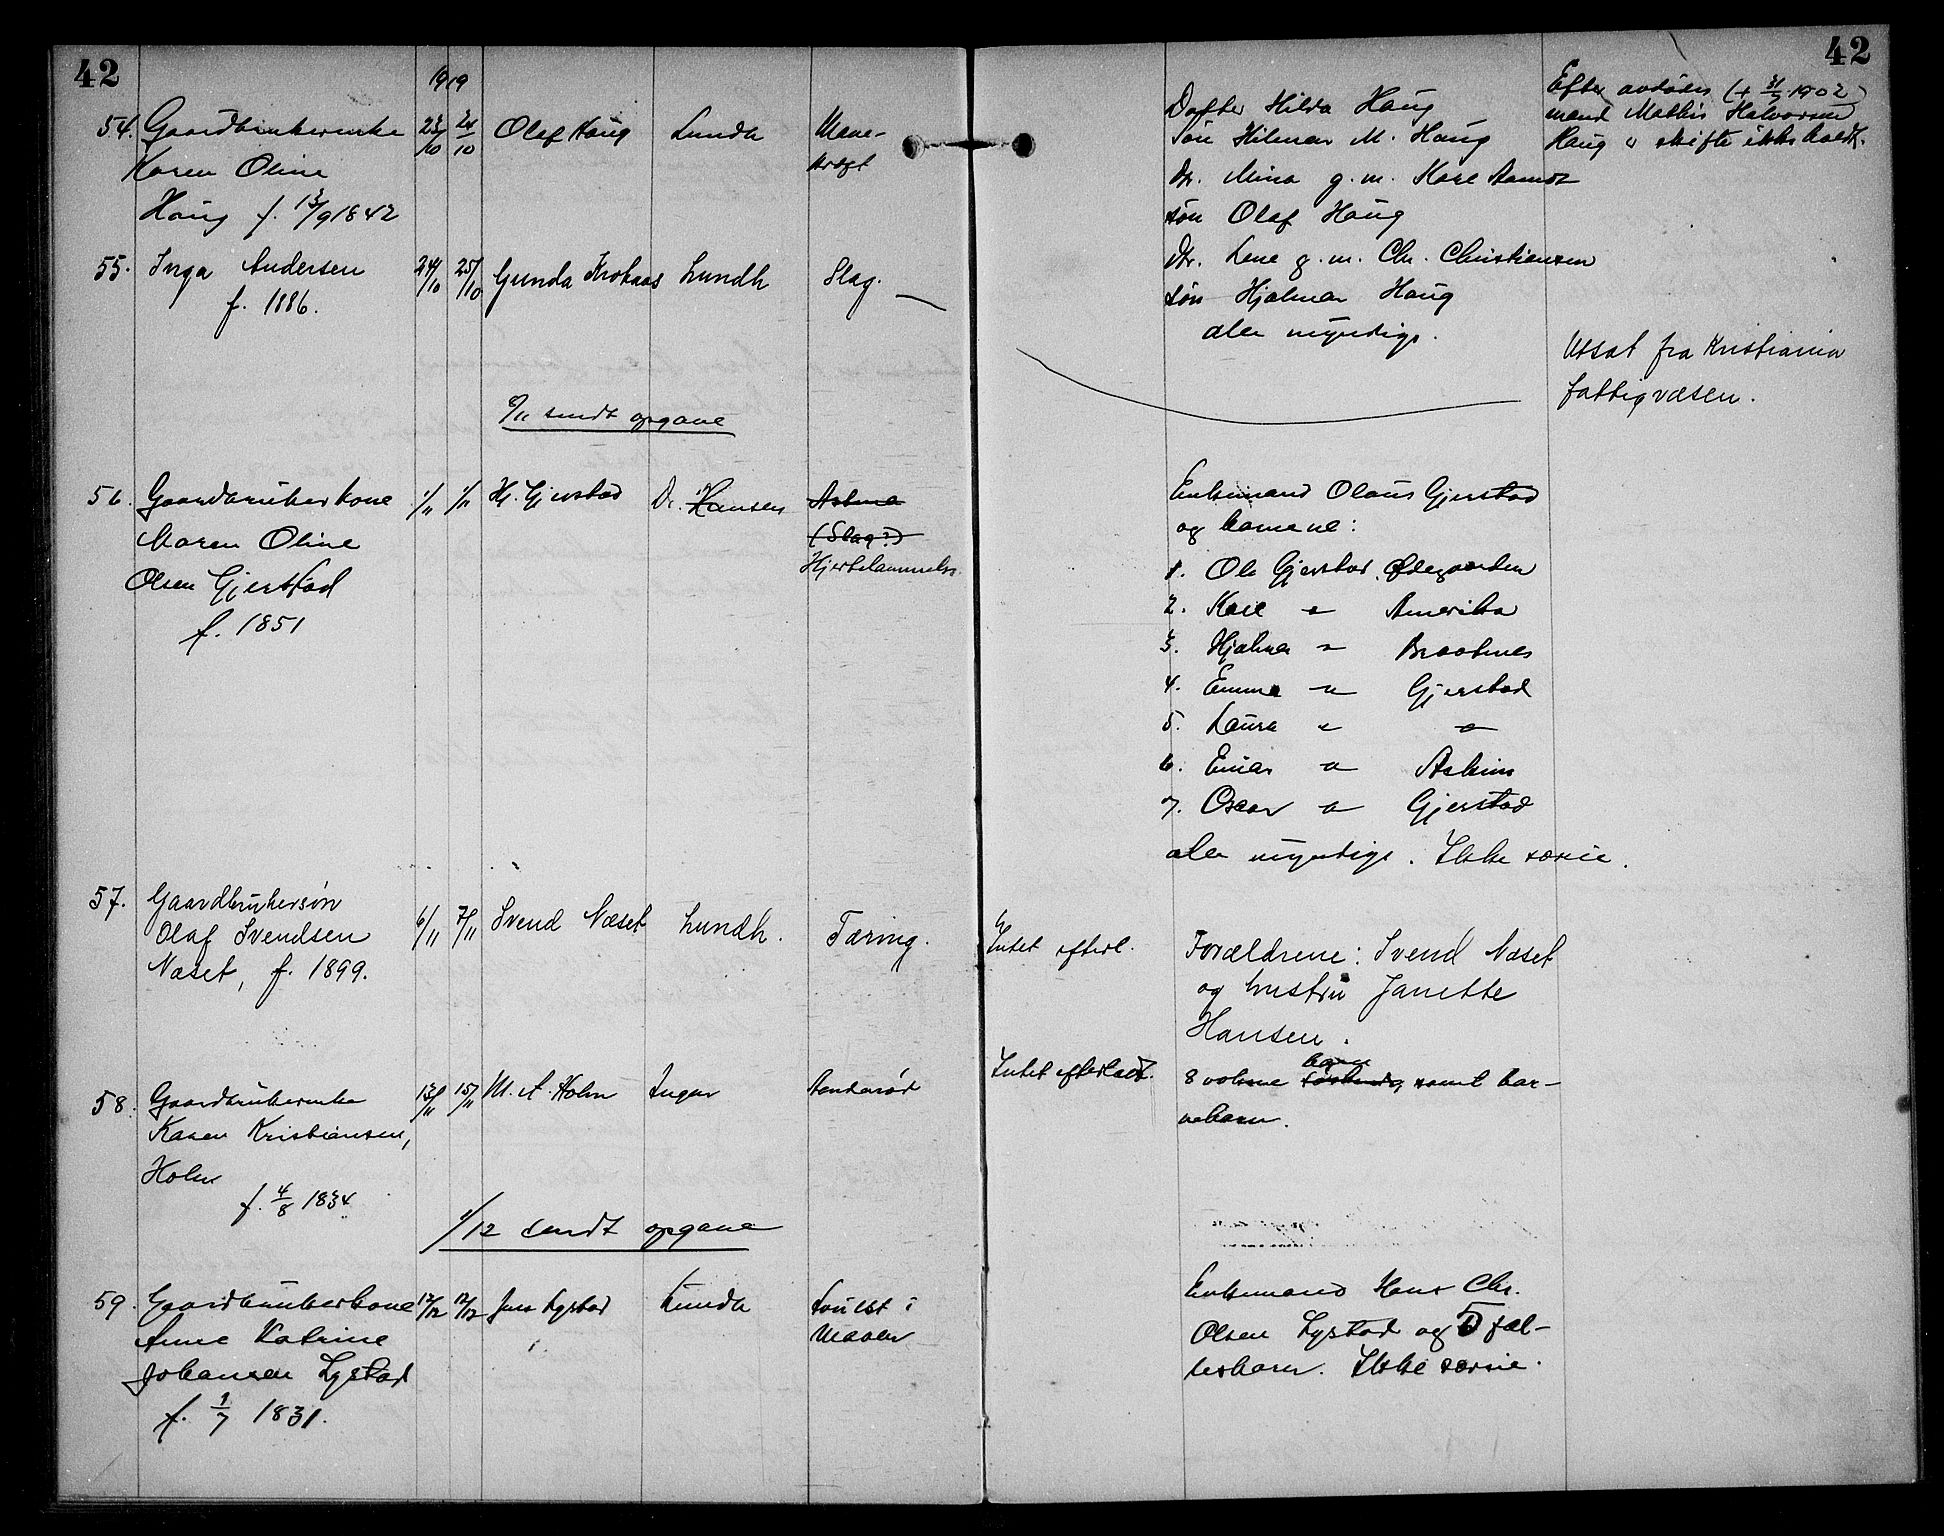 42
1919
54. Gaardbrukerenke 23/10 24/10 Olaf Haug Lundh Mave-
Karen Oline kræft
Haug f. 13/9 1842
55. Inga Andersen 24/10 25/10 Gunda Krokaas Lundh Slag. —
f. 1886.
8/11 sendt opgave
56. Gaardbrukerkone 1/11 1/11 Hj. Gjerstad Dr. Hansen Astma
Maren Oline (Slag?)
Olsen Gjerstad Hjertelammelse.
f. 1851
57. Gaardbrukersøn
Olaf Svendsen 6/11 7/11 Svend Næset Lundh. Tæring.
Næset, f. 1899.
58. Gaardbrukerenke 13/11 15/11 M. A. Holm Ingen
Karen Kristiansen,
Holm
f. 4/8 1834
1/12 sendt opgave
59. Gaardbrukerkone 12/12 12/12 Jens Lystad Lundh Svulst i
Anne Katrine Maven
Johansen Lystad
f. 1/7 1831.
42
Datter Hilda Haug
Søn Hilmar M. Haug
Dtr. Mina g.m. Kare
søn Olaf Haug
Dtr. Lene g.m. Chr. Christiansen
søn Hjalmar Haug
alle myndige.
Efter avdødes (+ 31/5 1902)
mand Mathis Halvorsen
Haug er skifte ikke holdt.
Utsat fra Kristiania
fattigvæsen.
Enkemand Olaus Gjerstad
og barnene:
1. Ole Gjerstad, Ødegaarden
2. Kare " Amerika
3. Hjalmar " Braatenes
4. Emma " Gjerstad
5. Laura " "
6. Einar " Askim
7. Oscar " Gjerstad
alle myndige. Ikke særeie.
Intet efterl. Forældrene: Svend Næset
og hustru Janette
Hansen.
Intet efterladt. 8 voksne barn samt bar-
nebarn.
Enkemand Hans Chr.
Olsen Lystad og 5 fæl-
lesbarn. Ikke særeie.